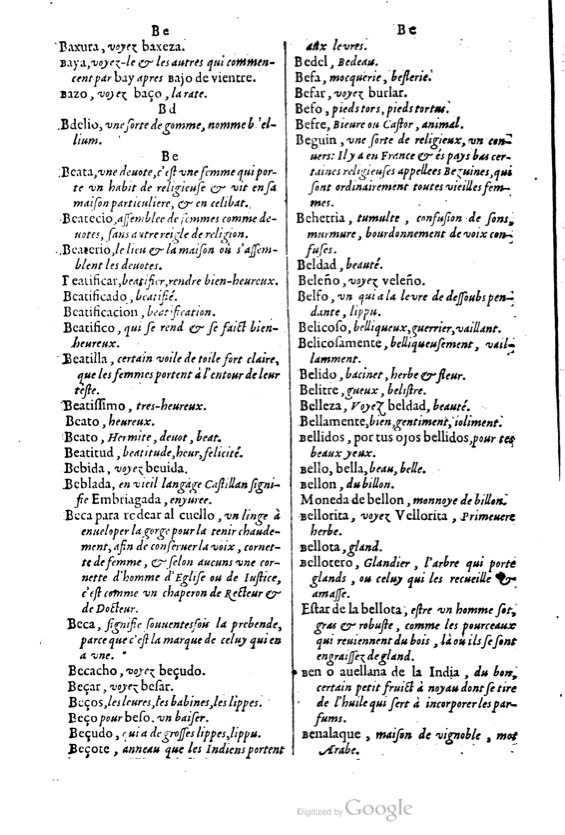 Be
Baxura, voyez baxeza.
Baya, voyez-le & les autres qui commen-
cent par bay apres Bajo de vientre.
Bazo, voyez baço, la rate.
Bd
Bdelio, vne sorte de gomme, nommé b'el-
lium.
Be
Beata, vne deuote, c'est vne femme qui por-
te vn habit de religieuse & vit en sa
maison particuliere, & en celibat.
Beatecio, assemblee de femmes comme de-
uotes, sans autre reigle de religion.
Beaterio, le lieu & la maison où s'assem-
blent les deuotes.
Beatificar, beatifier, rendre bien-heureux.
Beatificado, beatifié.
Beatificacion, beatification.
Beatifico, qui se rend & se faict bien-
heureux.
Beatilla, certain voile de toile fort claire,
que les femmes portent à l'entour de leur
teste.
Beatissimo, tres-heureux.
Beato, heureux.
Beato, Hermite, deuot, beat.
Beatitud, beatitude, heur, felicité.
Bebida, voyez beuida.
Beblada, en vieil langage Castillan signi-
fie Embriagada, enyuree.
Beca para redear al cuello, vn linge à
enueloper la gorge pour la tenir chaude-
ment, afin de conseruer la voix, cornet-
te de femme, & selon aucuns vne cor-
nette d'homme d'Eglise ou de Iustice,
c'est comme vn chaperon de Recteur &
de Docteur.
Beca, signifie souuentesfou la prebende,
parce que c'est la marque de celuy qui en
a vne.
Becacho, voyez beçudo.
Beçar, voyez besar.
Beços, les leures, les babines, les lippes.
Beço pour beso, vn baiser.
Beçudo, qui a de grosses lippes, lippu.
Beçote, anneau que les Indiens portent
Be
aux levres.
Bedel, Bedeau.
Befa, mocquerie, beslerie.
Befar, voyez burlar.
Befo, pieds tors, pieds tortus.
Befre, Bieure ou Castor, animal.
Beguin, vne sorte de religieux, vn con-
uers: Il y a en France & és pays bas cer-
taines religieuses appellees Beguines, qui
sont ordinairement toutes vieilles fem-
mes.
Behetria, tumulte, confusion de sons,
murmure, bourdonnement de voix con-
fuses.
Beldad, beauté.
Beleño, voyez veleño.
Belfo, vn qui a la levre de dessoubs pen-
dante, lippu.
Belicoso, belliqueux, guerrier, vaillant.
Belicosamente, belliqueusement, vail-
lamment.
Belido, bacinet, herbe & fleur.
Belitre, gueux, belistre.
Belleza, Voyez beldad, beauté.
Bellamente, bien, gentiment, ioliment.
Bellidos, por tus ojos bellidos, pour tes
beaux yeux.
Bello, bella, beau, belle.
Bellon, du billon.
Moneda de bellon, monnoye de billon.
Bellorita, voyez Vellorita, Primeuere
herbe.
Bellota, gland.
Bellotero, Glandier, l'arbre qui porte
glands, ou celuy qui les recueille &
amasse.
Estar de la bellota, estre vn homme sot,
gras & robuste, comme les pourceaux
qui reuiennent du bois, là ou ils se sont
engraissez de gland.
Ben o auellana de la India, du bon,
certain petit fruict à noyau dont se tire
de l'huile qui sert à incorporer les par-
fums.
Benalaque, maison de vignoble, mot
Arabe.
Digitized by Google